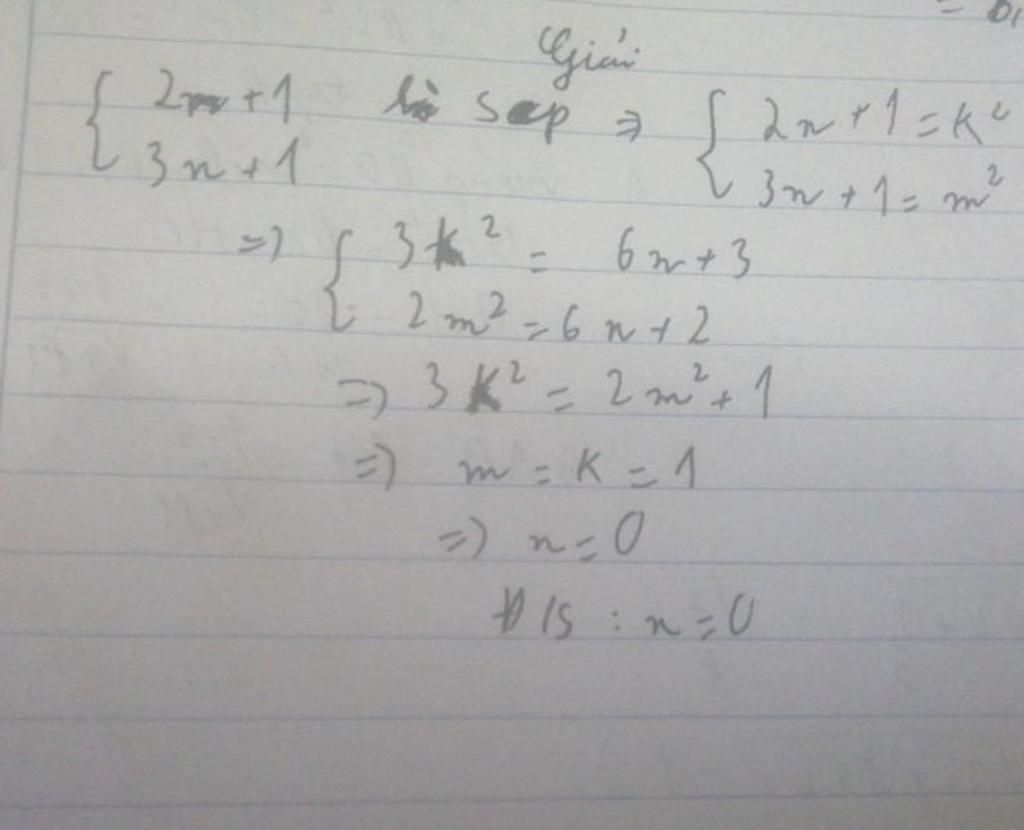 Giải
{ 2n+1 là scp => { 2n+1=k²
3n+1 3n+1=m²
=> { 3k² = 6n+3
2m² = 6n+2
=> 3k² = 2m²+1
=> m = k = 1
=> n=0
Đ/S : n=0